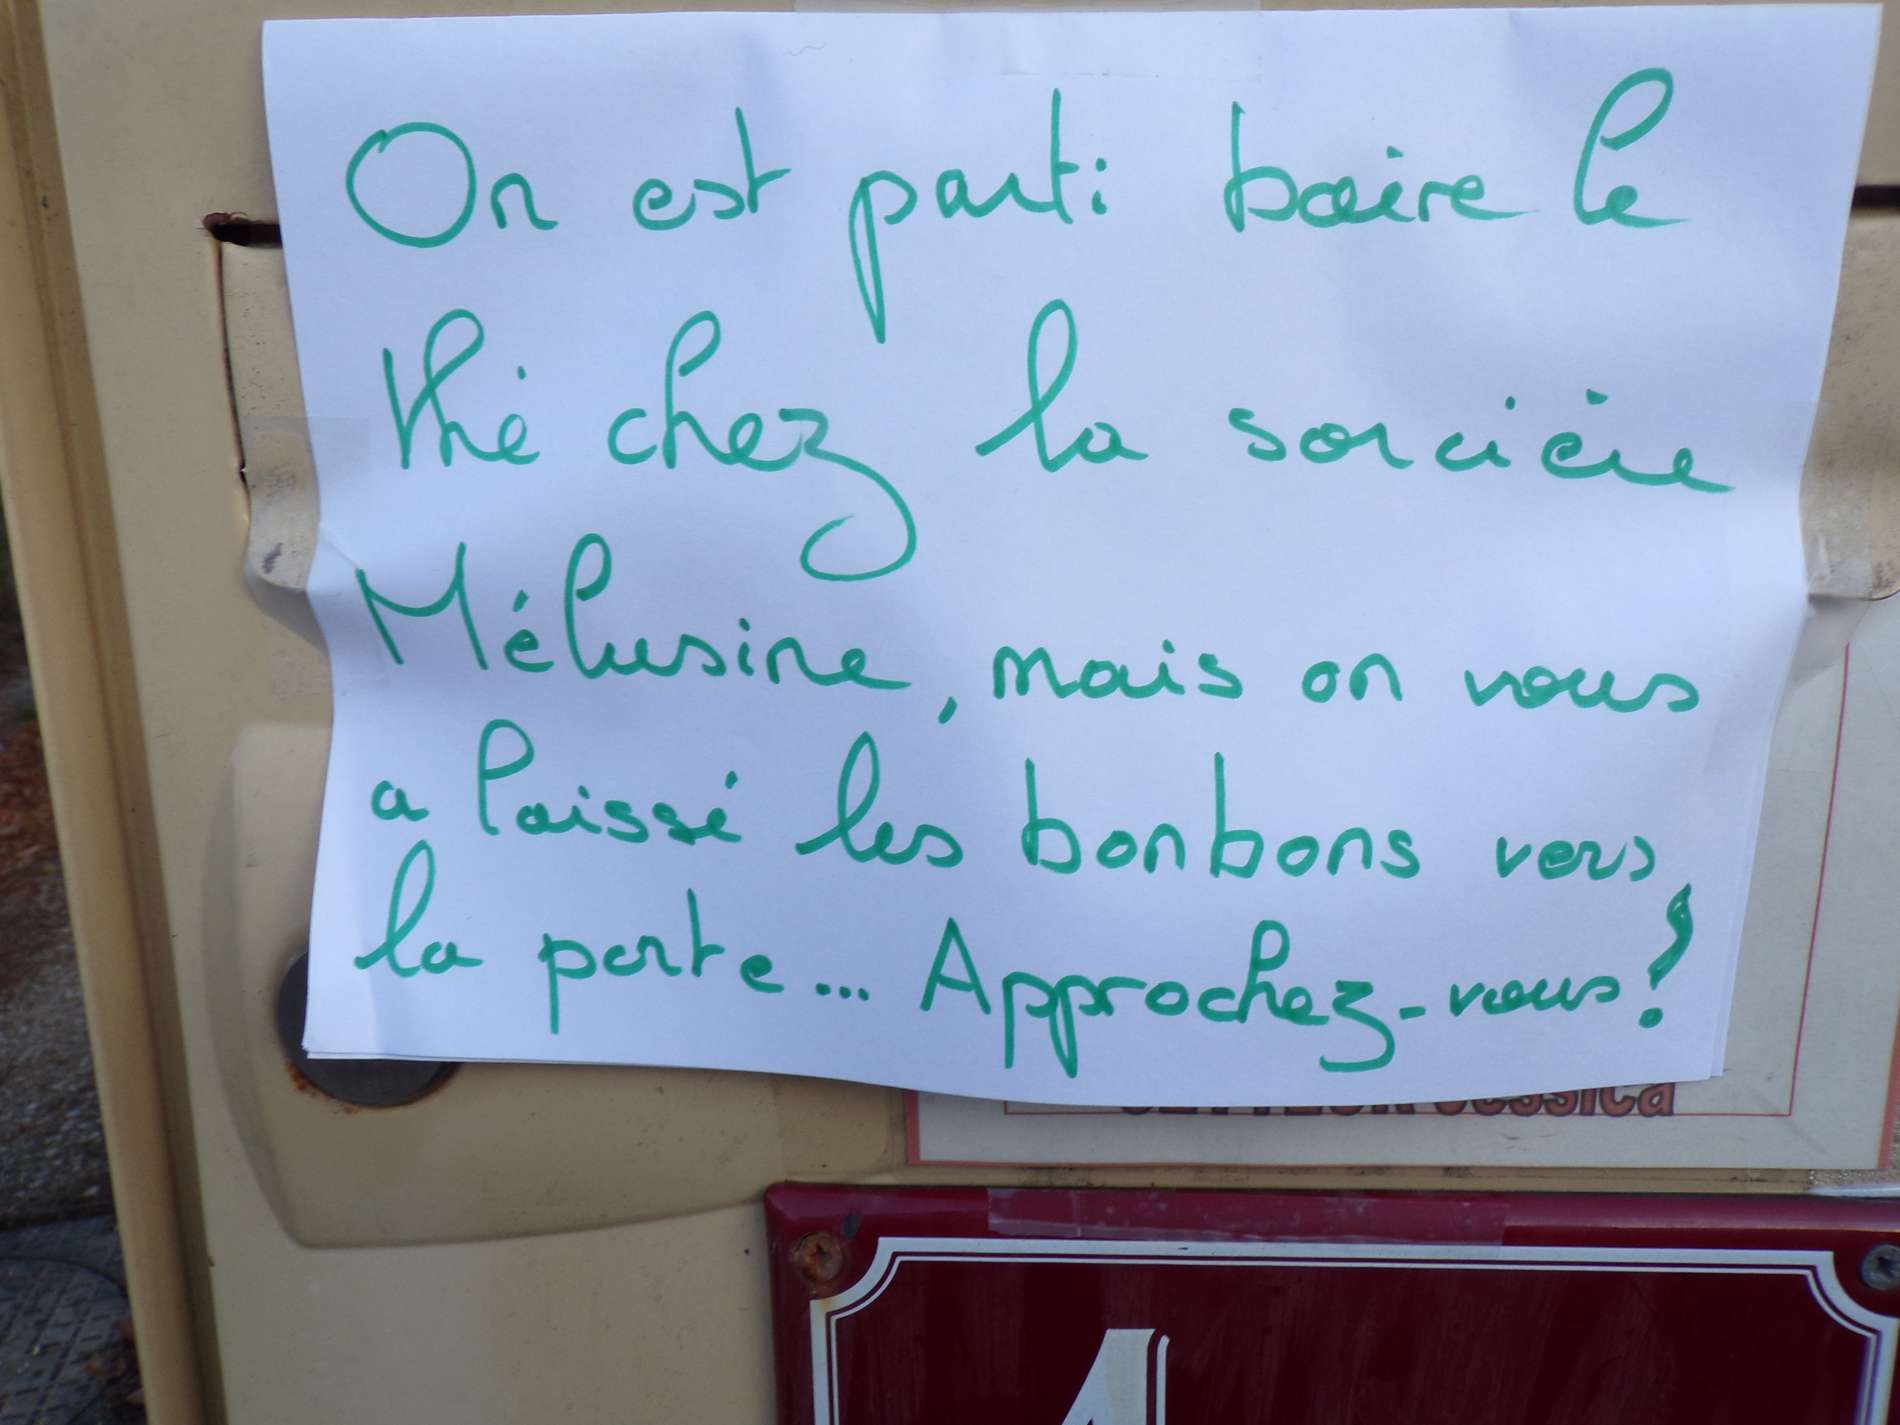 On est parti boire le
thé chez la sorcière
Mélusine, mais on vous
a laissé les bonbons vers
la porte... Approchez-vous!
Jessica
1